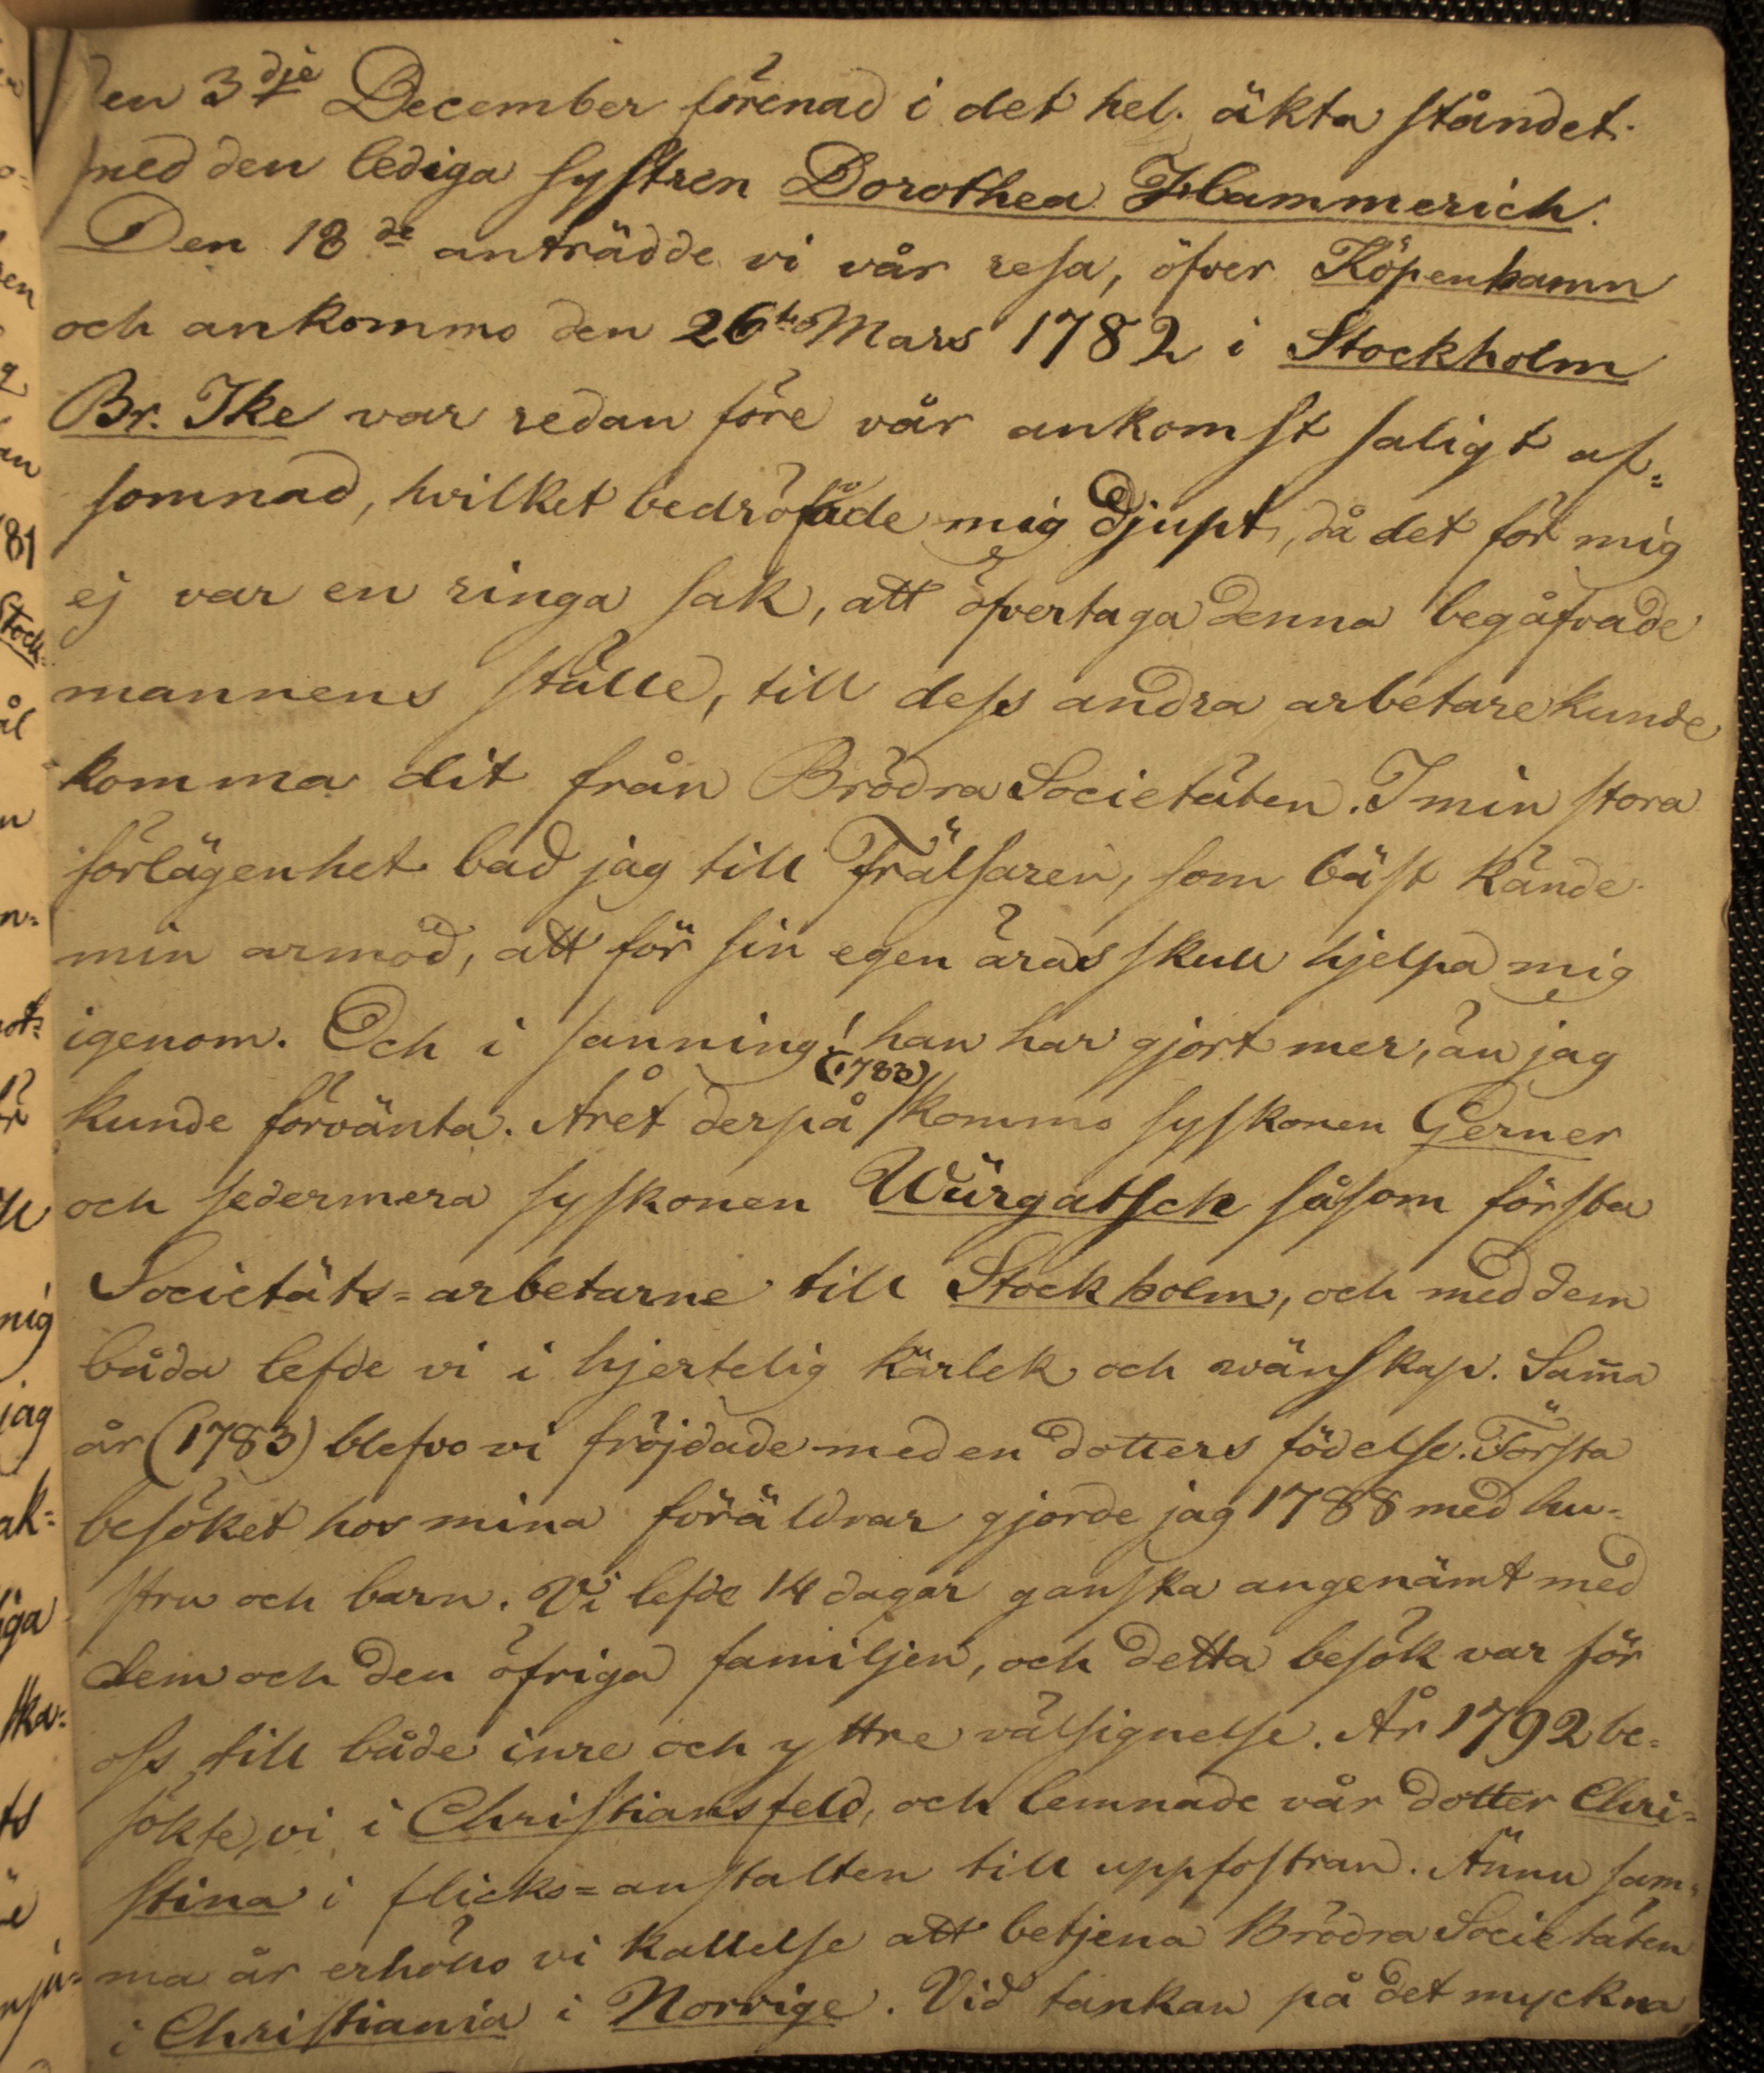 Den 3dje December förenad i det hel. äkta ståndet
med den lediga systren Dorothea Hammerich.
Den 18de anträdde vi vår resa, öfver Köpenhamn
och ankommo den 26te Mars 1782 i Stockholm
Br. Ike var redan före vår ankomst saligt af=
somnad, hvilket bedröfvade mig djupt, då det för mig
ej var en ringa sak, att öfvertaga denna begåfvade
mannens ställe, till dess andra arbetare kunde
komma dit från Brödra Societäten. I min stora
förlägenhet bad jag till Frälsaren, som bäst kände
min armod, att för sin egen äras skull hjelpa mig
igenom. Och i sanning! han har gjort mer, än jag
kunde förvänta. Året derpå (1783) kommo syskonen Gerner
och sedermera syskonen Würgatsch såsom första
Societäts=arbetarne till Stockholm, och med dem
båda lefde vi i hjertelig kärlek och wänskap. Sam̄a
år (1783) blefvo vi fröjdade med en dotters födelse. Första
besöket hos mina föräldrar gjorde jag 1788 med hu=
stru och barn. Vi lefde 14 dagar ganska angenämt med
dem och den öfriga familjen, och detta besök var för
oss till både inre och yttre välsignelse. År 1792 be=
sökte vi i Christiansfeld, och lemnade vår dotter Chri=
stina i flicks=anstalten till uppfostran. Ännu sam=
ma år erhöllo vi kallelse att betjena Brödra Societäten
i Christiania i Norrige. Vid tankan på det myckna